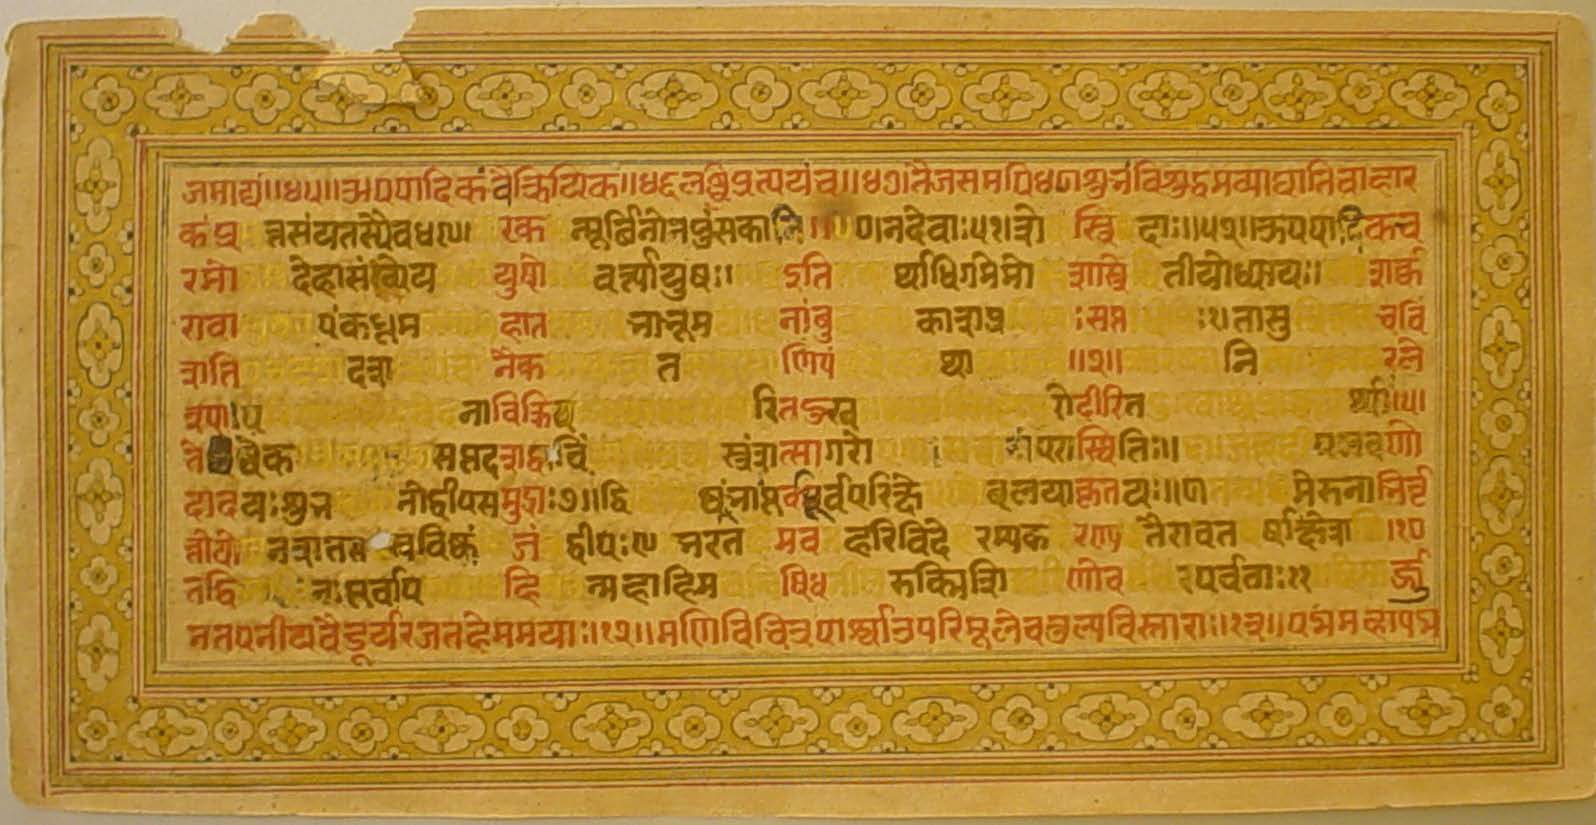 जमाद्यं॥४५॥उपपादिकंवैक्रियिक॥४६लब्धिप्रत्ययंच॥४७तैजसमपि४८शुभंविशुद्धमव्याघातिचाहार
कंप्र त्तसंयतस्यैव४९ रक न्मूर्छिनोनपुंसकानि॥ ५०नदेवाः५१शे स्त्रि दाः॥५२॥ऊपपादिकच
रमो देहासंख्येय युषो वर्त्यायुषः॥ इति र्थाधिगमेमो शास्त्रे तीयोध्यायः॥ शर्क
रावा पंकधूम हात मानूम नांबु काशप्र ःसप्त ः१तासु चविं
शति दश नैक त णिपं था ॥२॥ नि रले
श्याप नाविक्रिय रितदुःख रोदीरित र्थाः॥५।
ते ष्वेक सप्तदशद्वाविं स्त्रंशत्सागरो परास्थितिः॥ पलवणो
दादयःशुभ नोद्वीपसमुद्राः७॥द्वि पूर्वपूर्वपरिक्षे वलयाकृतयः॥८ मेरुनाभिर्वृ
त्तोयो नशतस स्रविष्कं जं द्वीपः९ भरत मव हरिविदे रम्यक रण्य तैरावत र्षाःक्षेत्रा ।१०
तद्वि नःपूर्वाप हि न्महाहिम षध रुक्मिशि णोव रपर्वताः११ र्जु
नतपनीयवैडूर्यरजतहेममयाः॥१२॥मणिविचित्रपार्श्वाउपरिमूलेचतुल्यविस्ताराः॥१३॥पद्ममहापद्म